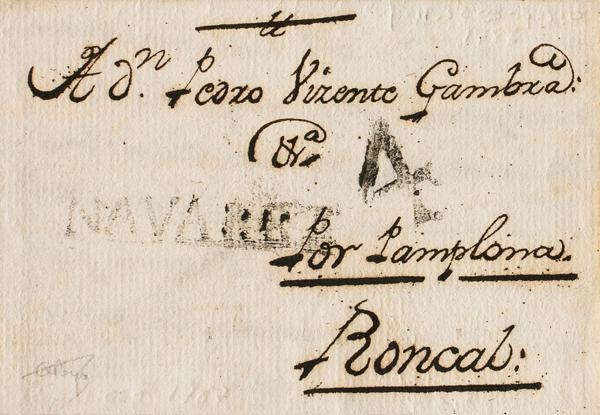 A dⁿ. Pedro Vizente Gambra:
&ᵃ
4
NAVARRA
Por Pamplona.
Roncal: